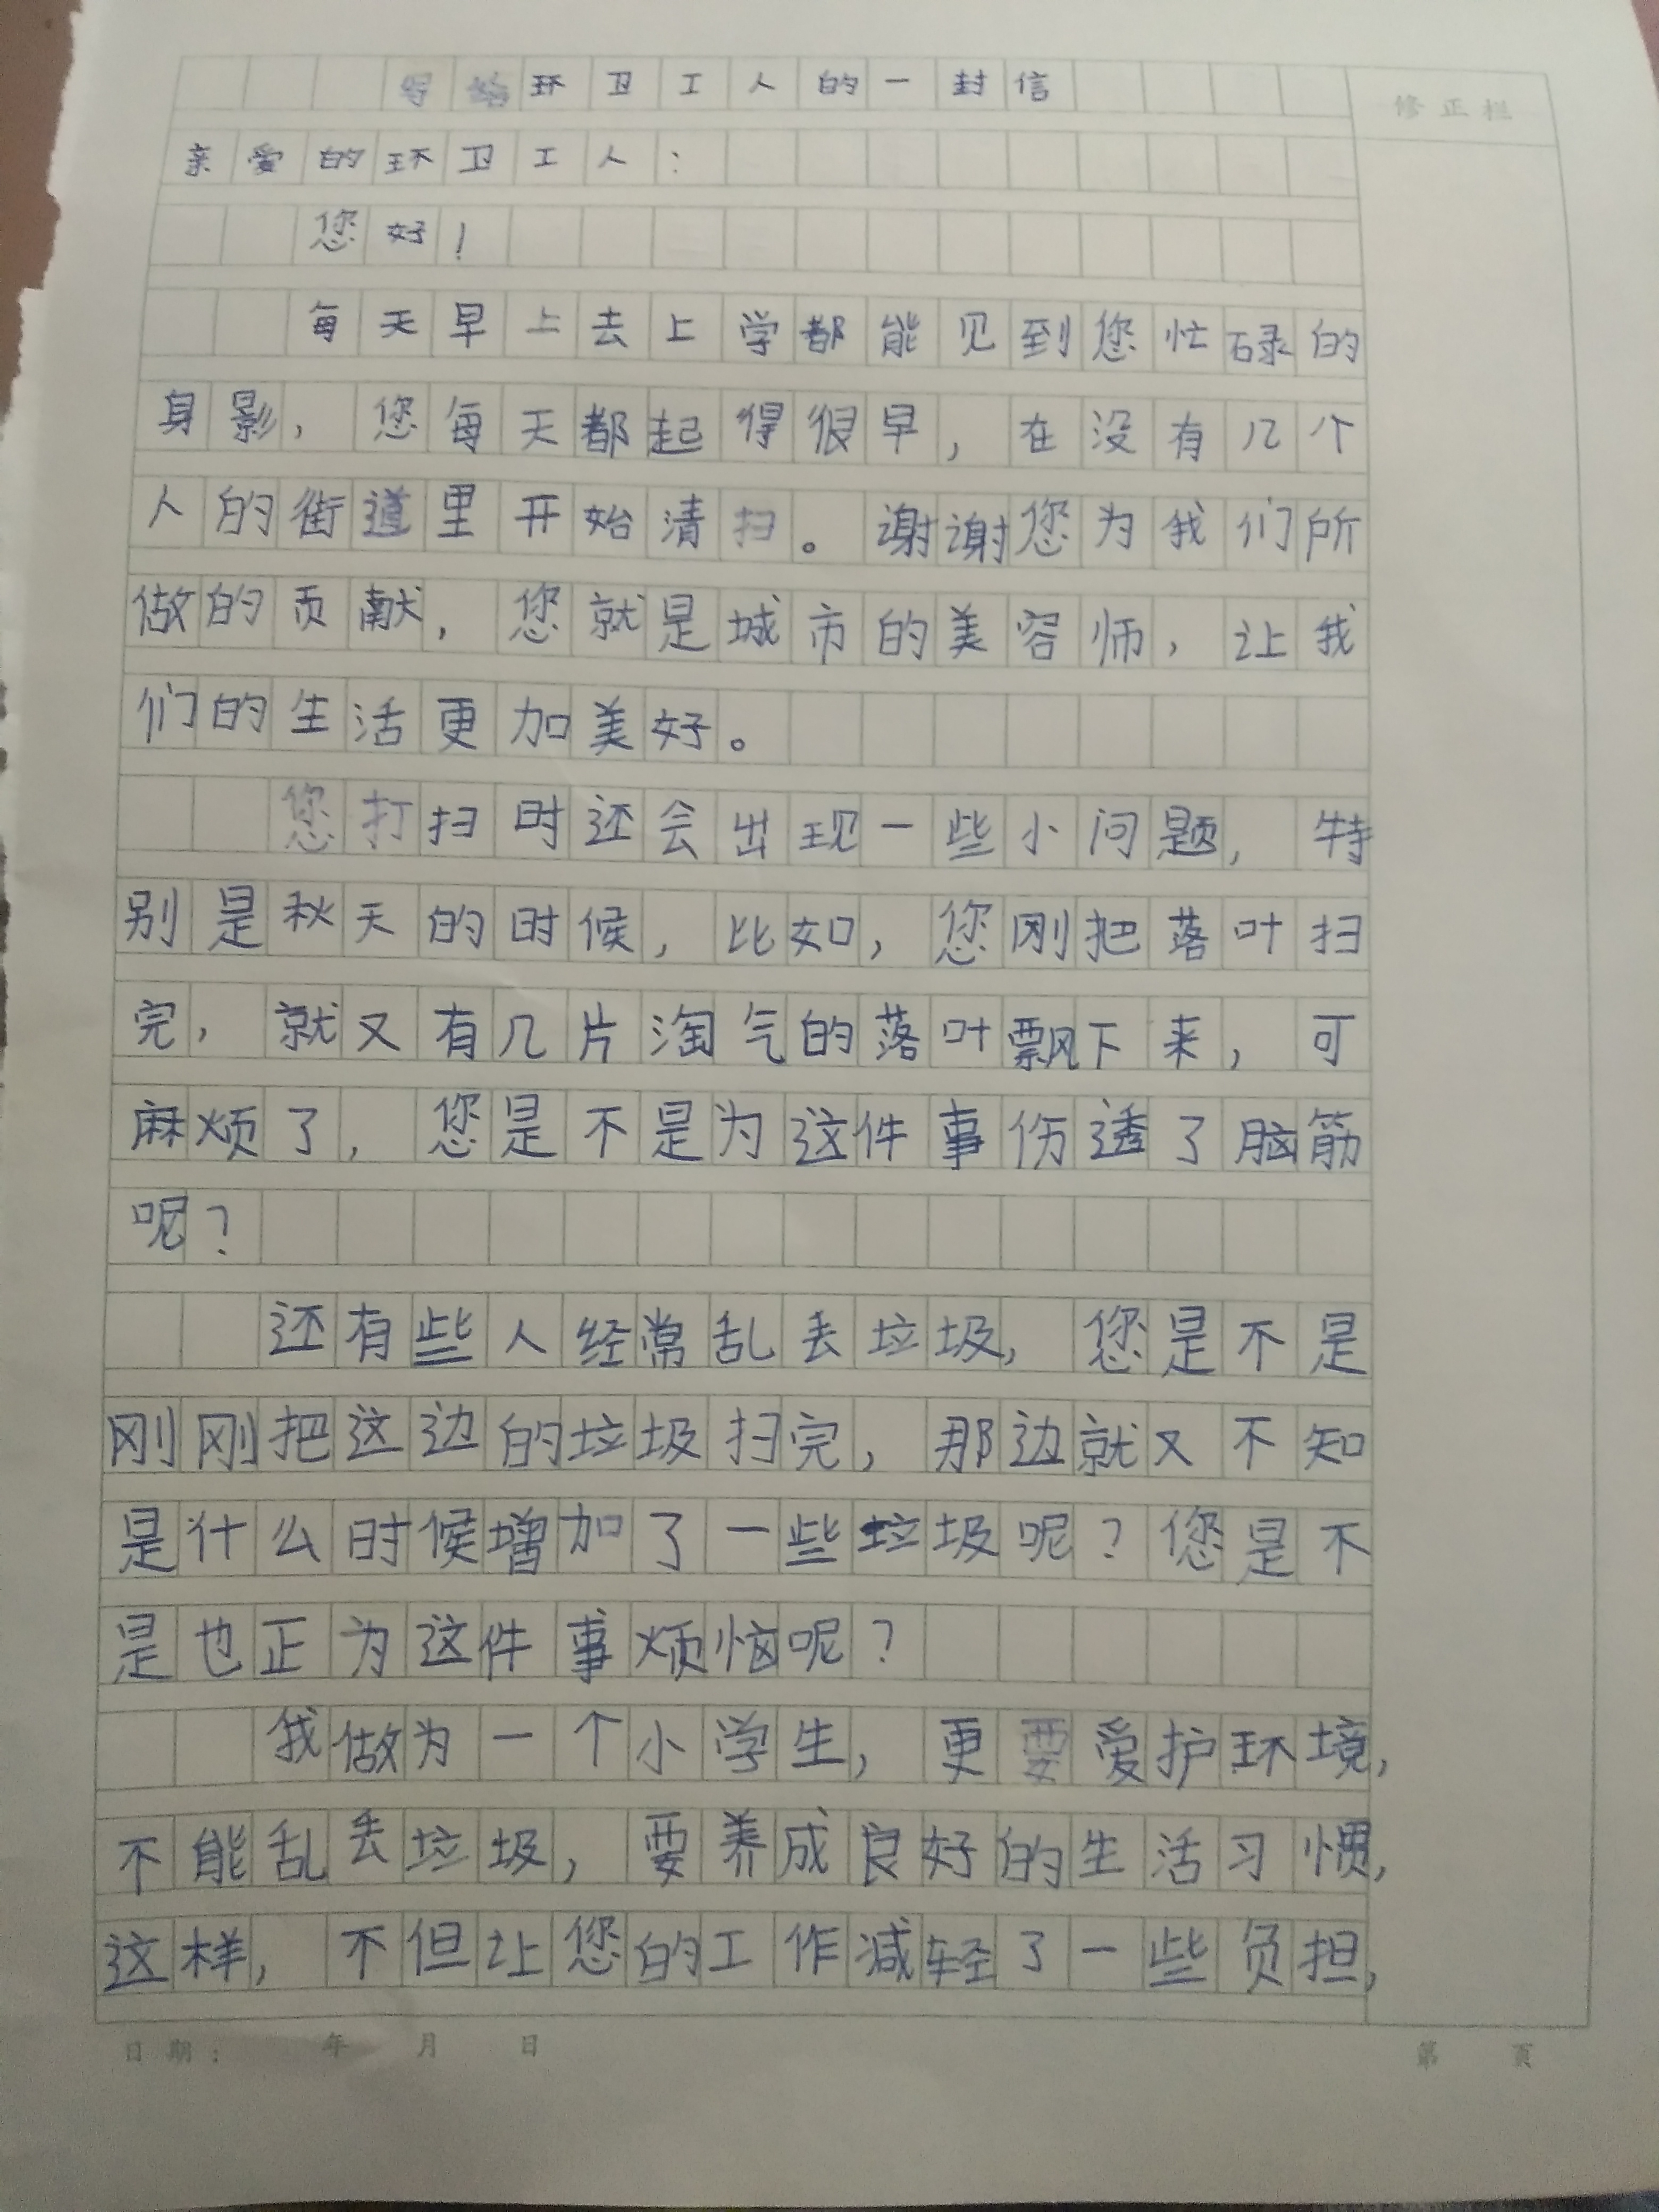 写给环卫工人的一封信
修正栏
亲爱的环卫工人：
您好！
每天早上去上学都能见到您忙碌的
身影，您每天都起得很早，在没有几个
人的街道里开始清扫。谢谢您为我们所
做的贡献，您就是城市的美容师，让我
们的生活更加美好。
您打扫时还会出现一些小问题，特
别是秋天的时候，比如，您刚把落叶扫
完，就又有几片淘气的落叶飘下来，可
麻烦了，您是不是为这件事伤透了脑筋
呢？
还有些人经常乱丢垃圾，您是不是
刚刚把这边的垃圾扫完，那边就又不知
是什么时候增加了一些垃圾呢？您是不
是也正为这件事烦恼呢？
我做为一个小学生，更要爱护环境，
不能乱丢垃圾，要养成良好的生活习惯，
这样，不但让您的工作减轻了一些负担，
日期： 年 月 日 第 页